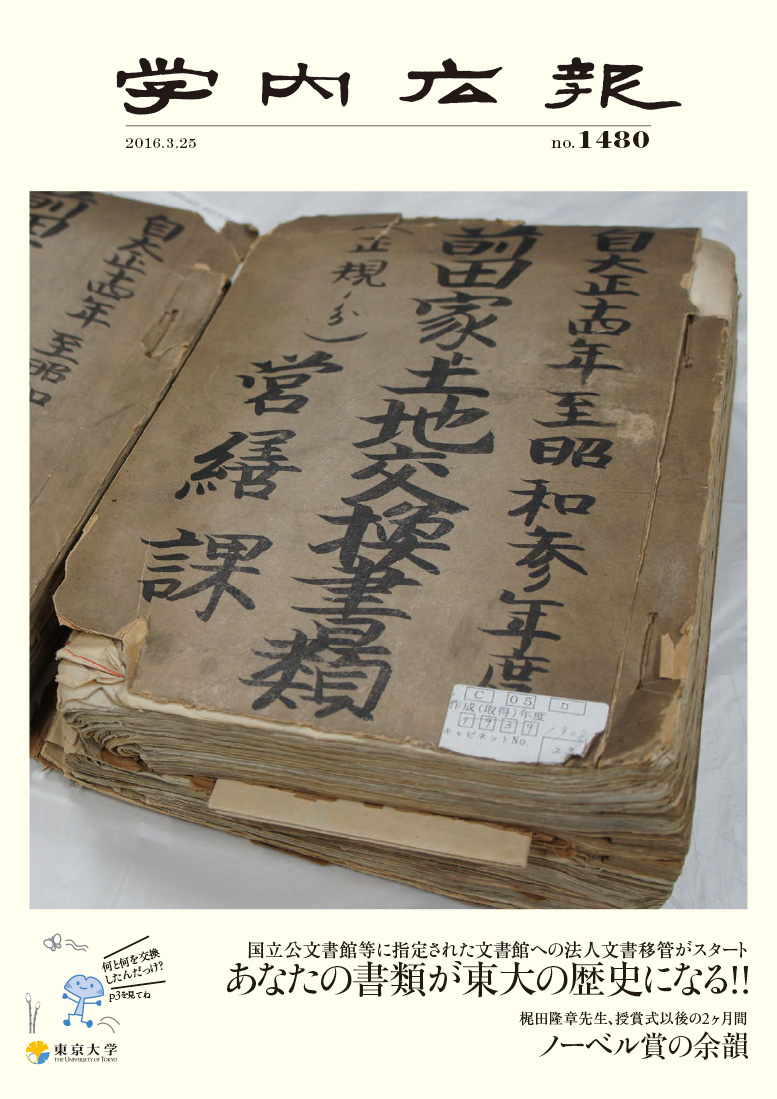 学内広報
2016.3.25
no.1480
自大正十四年 至昭和参年度
前田家土地交換書類
(正規ノ分)
営繕課
前田
自大正十四年 至昭和
C 05 ロ
作成(取得)年度
1939 1928
キャビネットNo.
何と何を交換
したんだっけ?
p3を見てね
国立公文書館等に指定された文書館への法人文書移管がスタート
あなたの書類が東大の歴史になる!!
梶田隆章先生、授賞式以後の2ヶ月間
ノーベル賞の余韻
東京大学
THE UNIVERSITY OF TOKYO